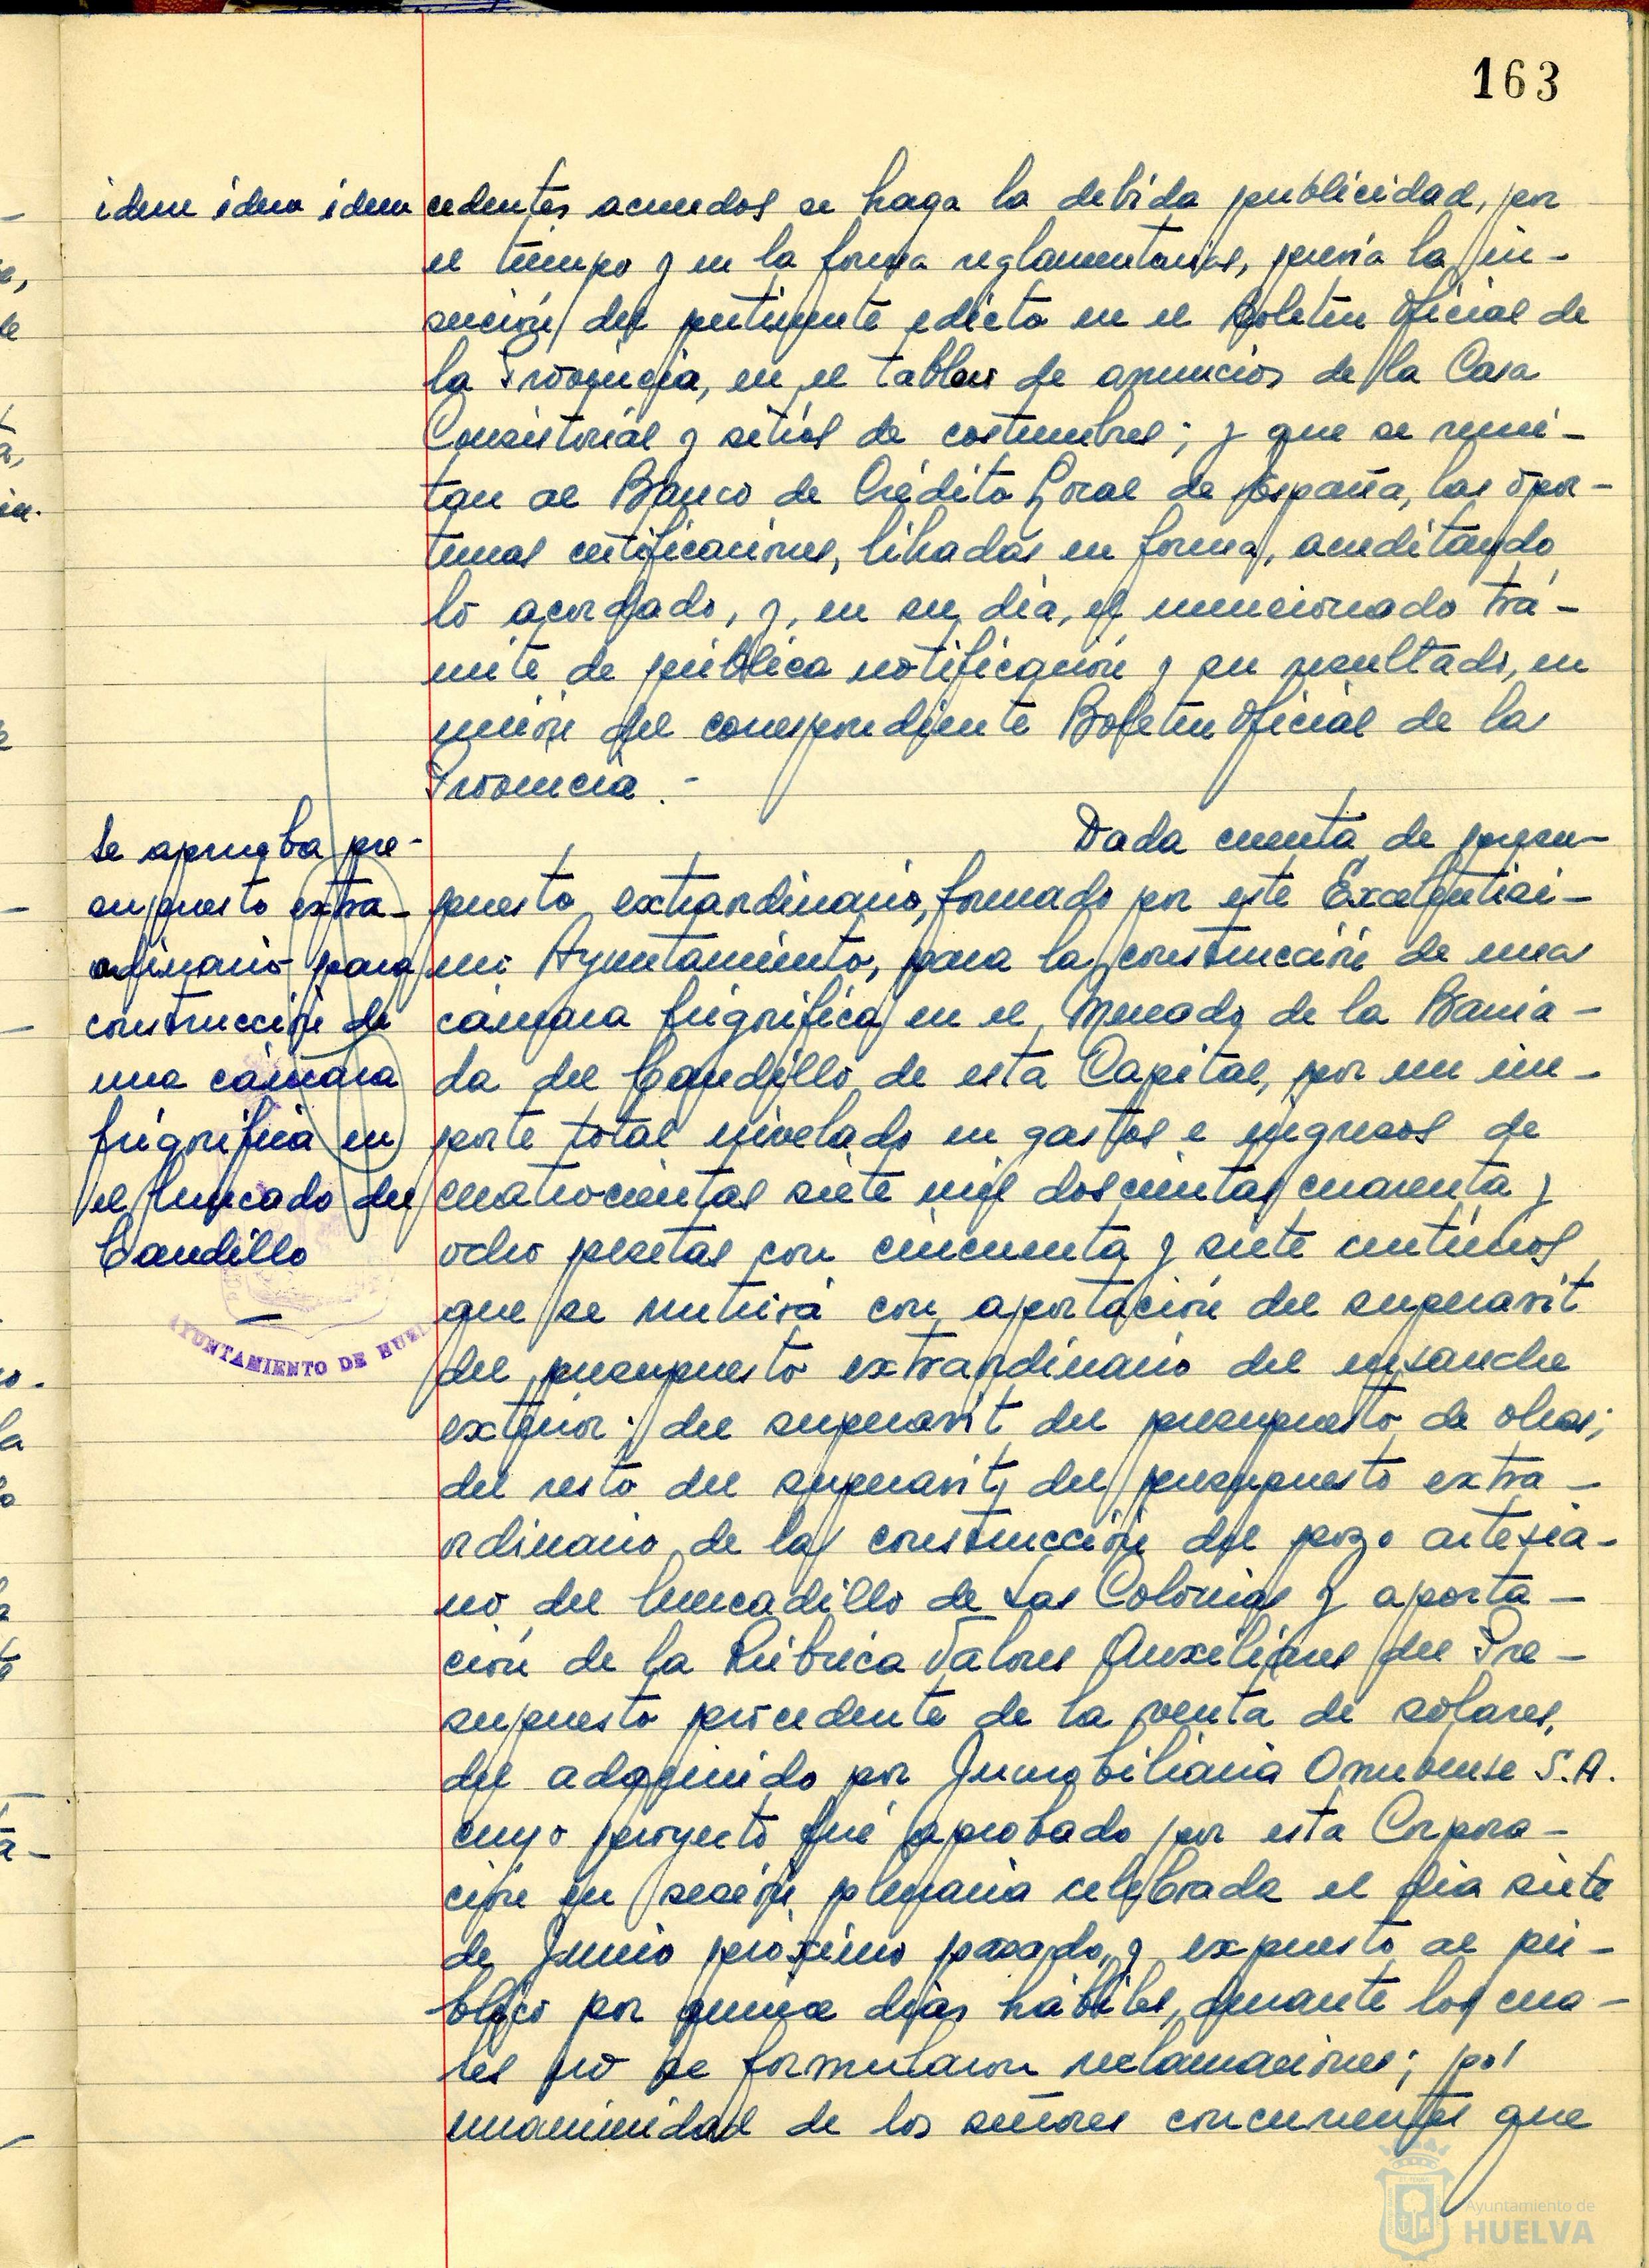 163
idem idem idem
cedentes acuerdos se haga la debida publicidad, por
el tiempo y en la forma reglamentarias, previa la in-
serción del pertinente edicto en el Boletin Oficial de
la Provincia, en el tablon de anuncios de la Casa
Consistorial y sitios de costumbres; y que se remi-
tan al Banco de Crédito Local de España, las opor-
tunas certificaciones, libradas en forma, acreditando
lo acordado, y, en su día, el mencionado trá-
mite de pública notificación y su resultado, en
unión del correspondiente Boletin Oficial de la
Provincia.-
Se aprueba pre-
supuesto extra-
ordinario para
construcción de
una cámara
frigorífica en
el Mercado del
Caudillo
Dada cuenta de presu-
puesto extraordinario, formado por este Excelentisi-
mo Ayuntamiento, para la construcción de una
cámara frigorífica en el Mercado de la Barria-
da del Caudillo, de esta Capital, por un im-
porte total nivelado en gastos e ingresos de
cuatrocientas siete mil doscientas cuarenta y
ocho pesetas con cincuenta y siete centimos
que se nutrirá con aportación del superavit
del presupuesto extraordinario del ensanche
exterior; del superavit del presupuesto de obras;
del resto del superavit del presupuesto extra-
ordinario de la construcción del pozo artesia-
no del Mercadillo de Las Colonias y aporta-
ción de la Rúbrica Valores Auxiliares del Pre-
supuesto procedente de la venta de solares,
del adquirido por Inmobiliaria Onubense S.A.
cuyo proyecto fué aprobado por esta Corpora-
ción en sesión plenaria celebrada el dia siete
de Junio próximo pasado, y expuesto al pú-
blico por quince dias hábiles, durante los cua-
les no se formularon reclamaciones; por
unanimidad de los señores concurrentes que
AYUNTAMIENTO DE HUEL
Ayuntamiento de
HUELVA